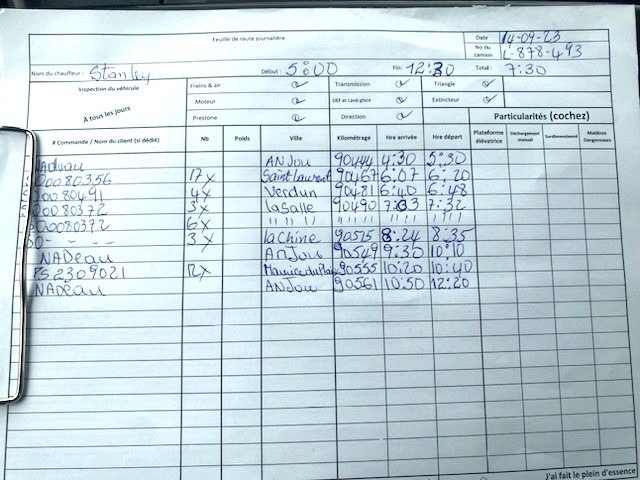 Feuille de route journalière
Date 14-09-23
No du camion L-878-493
Nom du chauffeur : Stanley Début : 5:00 Fin: 12:30 Total : 7:30
Inspection du véhicule Freins & air Transmission Triangle
À tous les jours Moteur DEF et Lave-glace Extincteur
Prestone Direction Particularités (cochez)
# Commande / Nom du client (si dédié) Nb Poids Ville Kilométrage Hre arrivée Hre départ Plateforme élévatrice Déchargement manuel Surdimensionné Matières Dangereuses
Nadeau ANJou 90444 4:30 5:30
00080356 17x Saint Laurent 90467 6:07 6:20
00080491 4x Verdun 90481 6:40 6:48
00080372 3x LaSalle 90490 7:03 7:32
00080372 6x " " " " " " " " " "
3x LaChine 90515 8:24 8:35
NADeau ANJou 90549 9:30 10:10
PS.2309021 12x 90555 10:20 10:40
NADéau ANJou 90561 10:50 12:20
J'ai fait le plein d'essence